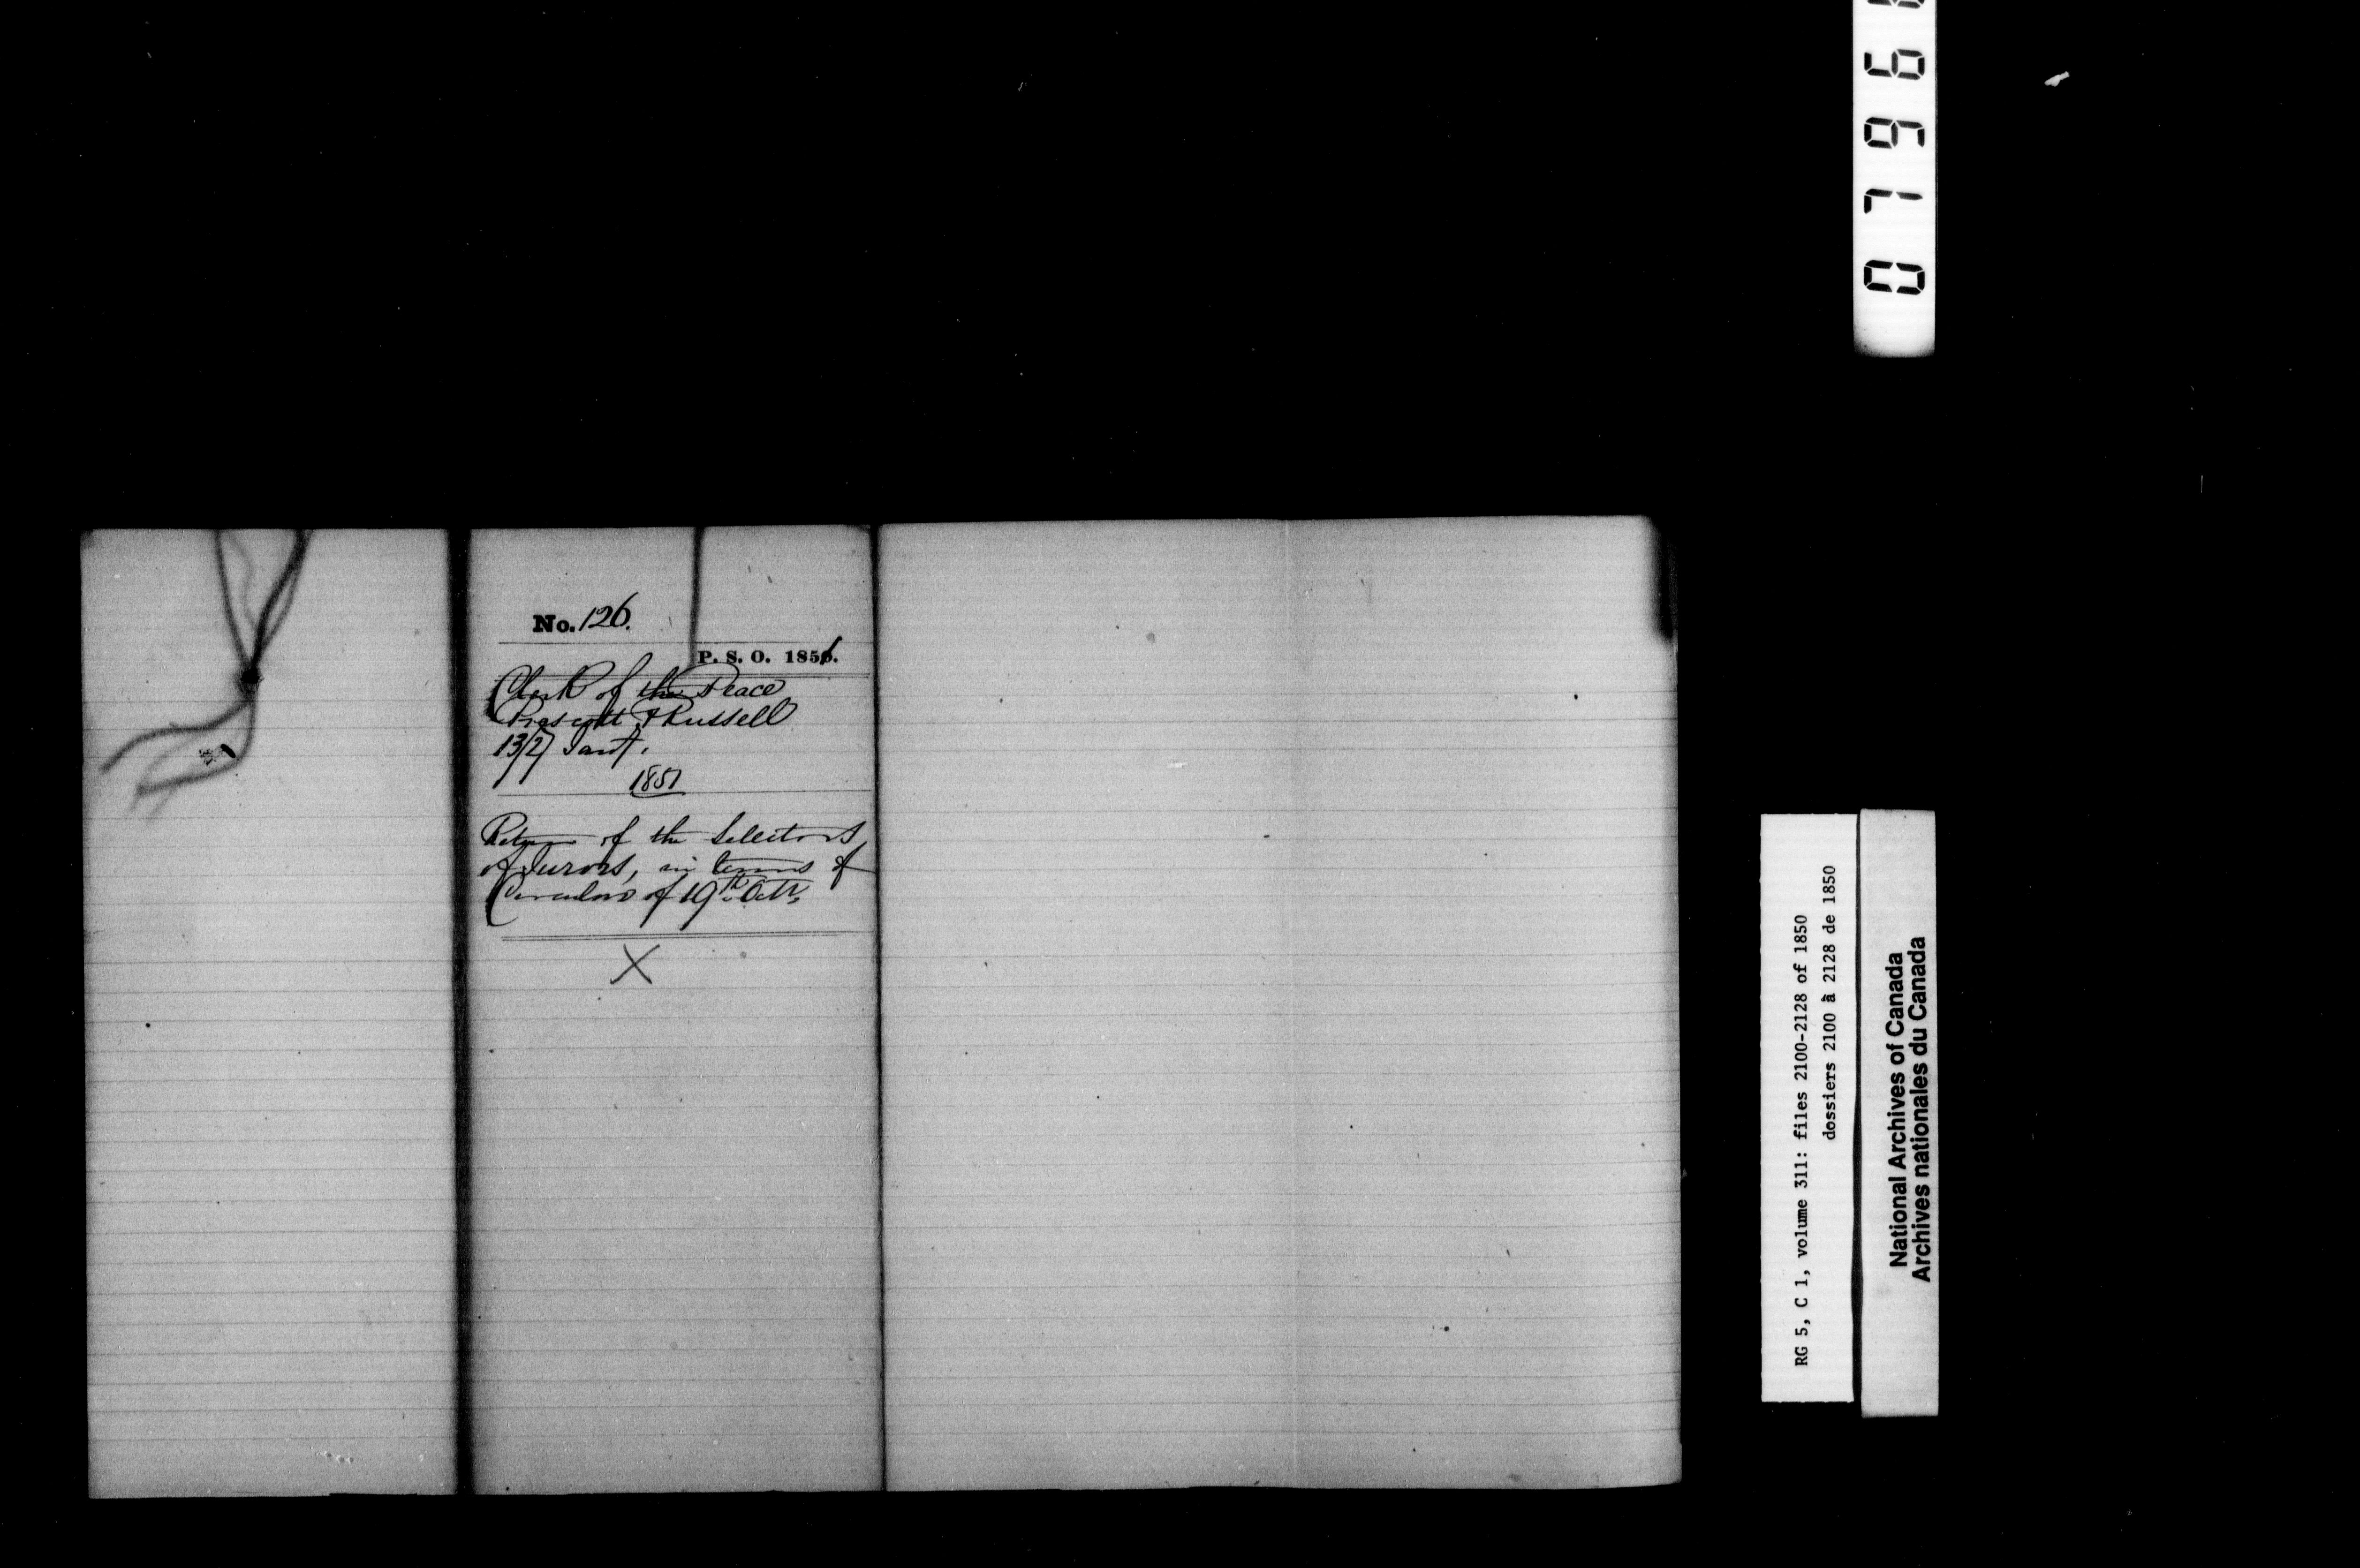 No. 126.
P. S. O. 1851.
Clerk of the Peace
Prescott & Russell
13/27 Jany.
1851
Return of the Selectors
of Jurors, in terms of
Circular of 19th Octr.
X
0796
RG 5, C 1, volume 311: files 2100-2128 of 1850
dossiers 2100 à 2128 de 1850
National Archives of Canada
Archives nationales du Canada